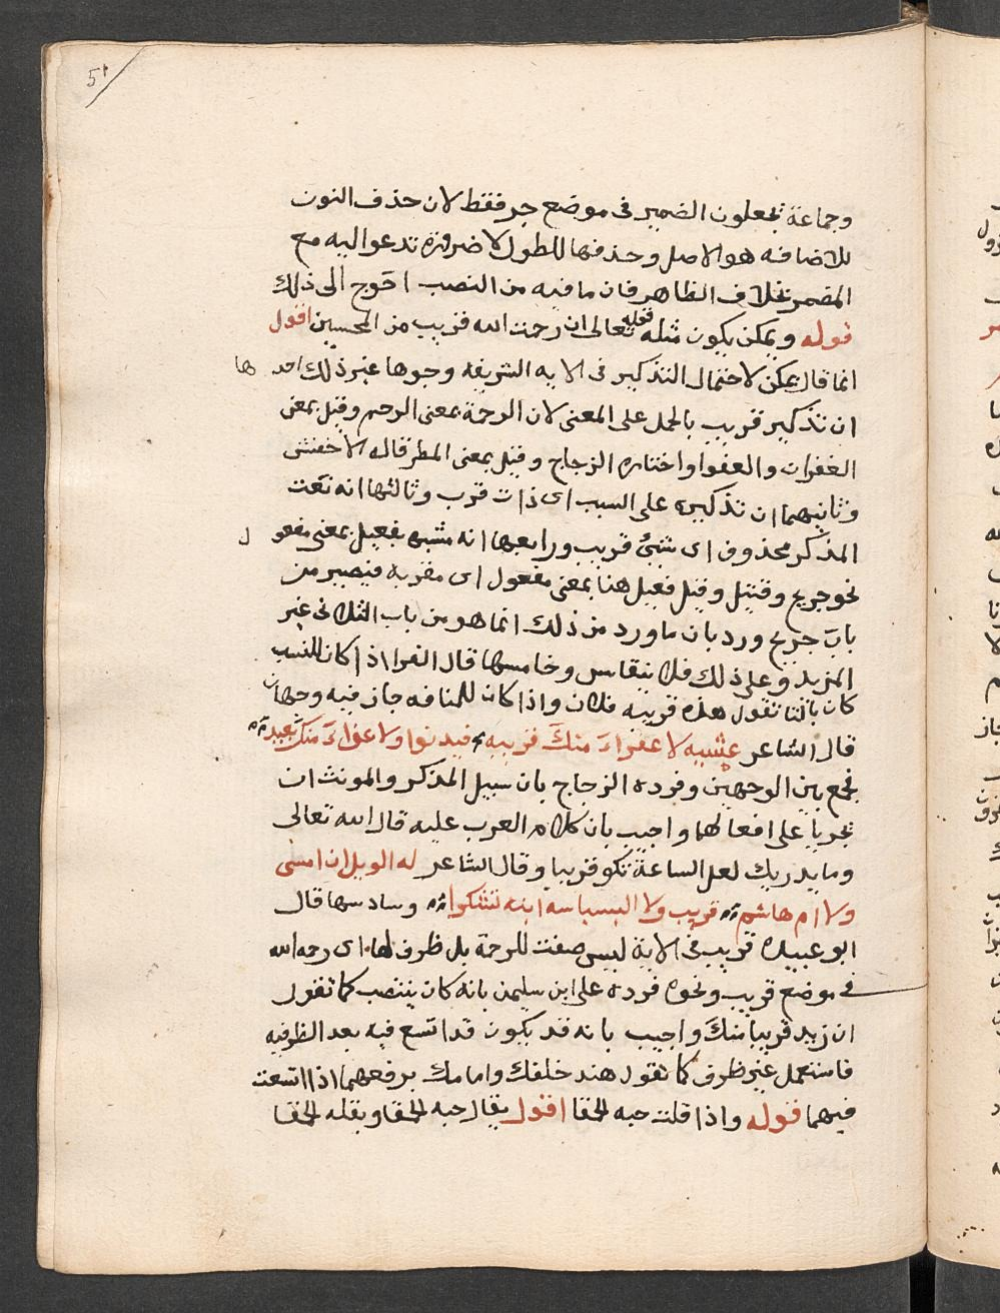 51
وجماعة يجعلون الضمير فى موضع جر فقط لان حذف النون
للاضافه هو الاصل وحذفها للطول لا ضرورة تدعوا اليه مع
المضمر بخلاف الظاهر فان ما فيه من النصب احوج الى ذلك
قوله ويمكن يكون مثله قوله تعالى ان رحمت الله قريب من المحسنين اقول
انما قال يمكن لاحتمال التذكير فى الايه الشريفه وجوها غير ذلك احدها
ان تذكير قريب بالحمل على المعنى لان الرحمة بمعنى الرحم وقيل بمعنى
الغفران والعفوا واختاره الزجاج وقيل بمعنى المطر قاله الاخفش
وثانيهما ان تذكيره على السبب اى ذات قرب وثالثها انه نعت
المذكر محذوف اى شىء قريب ورابعها انه مشبه بفعيل بمعنى مفعول
نحو جريح وقتيل وقيل فعيل هنا بمعنى مفعول اى مقربه فيصير من
باب جريح ورد بان ما ورد من ذلك انما هو من باب الثلاثى غير
المزيد وعلى ذلك فلا ينقاس وخامسها قال الفرا اذا كان للنسب
كان بالتا تقول هذه قريبه فلان واذا كان للمسافه جاز فيه وجهان
قال الشاعر عشيه لا عفراء منك قريبه فيدنوا ولا عفراء منك بعيد
فجمع بين الوجهين وفرده الزجاج بان سبيل المذكر والمونث ان
يجريا على افعالهما واجيب بان كلام العرب عليه قال الله تعالى
وما يدريك لعل الساعة تكو قريبا وقال الشاعر له الويل ان امسى
ولا ام هاشم قريب ولا البسباسه ابنه تشكرا وسادسها قال
ابو عبيده قريب فى الاية ليس صفت للرحمة بل ظرف لها اى رحمه الله
فى موضع قريب ونحوه فرده على ابن سليمن بانه كان ينتصب كما تقول
ان زيد قريبا منك واجيب بانه قد يكون قد اتسع فيه بعد الظرفيه
فاستعمل غير ظرف كما تقول هند خلفك وامامك برفعهما اذا اتسعت
فيهما قوله واذا قلت حبه الحمقا اقول يقال حبه الحمقا وبقله الحمقا